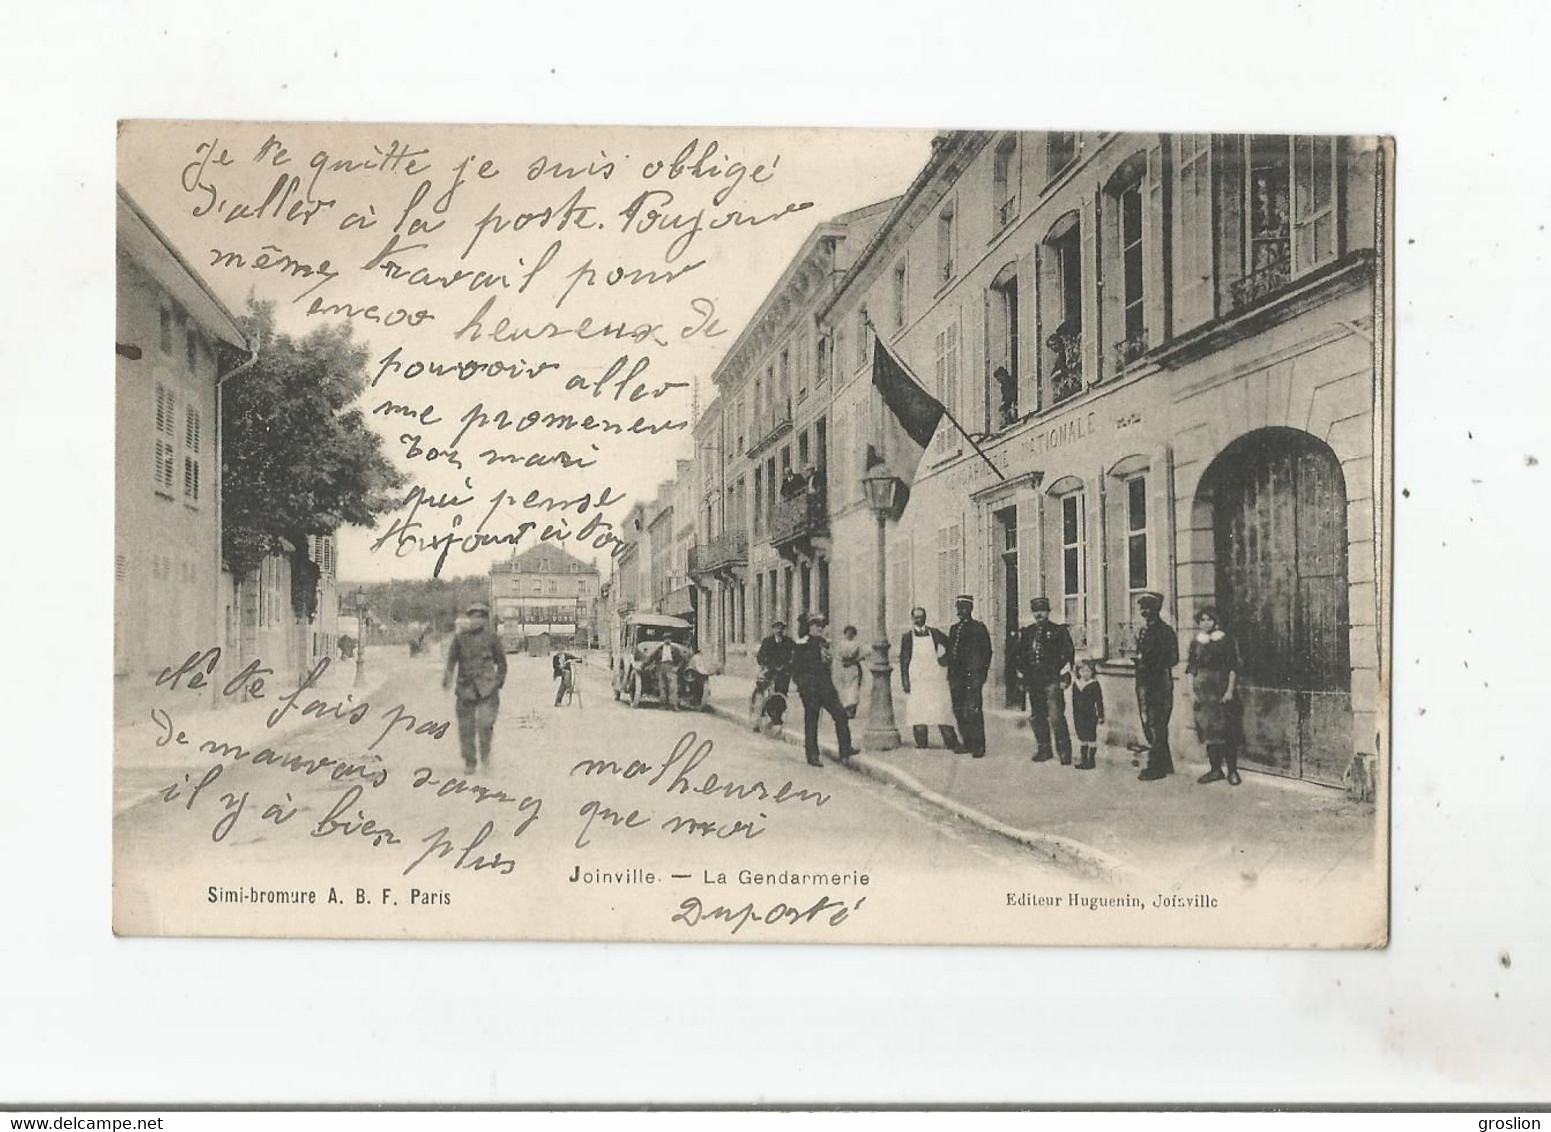 Je te quitte je suis obligé
d'aller à la poste. Toujours
même travail pour
encor heureux de
pouvoir aller
me promener
Ton mari
qui pense
toujour à toi
Ne te fais pas
de mauvais sang
il y à bien plus
malheureu
que moi
GENDARMERIE NATIONALE
Joinville. — La Gendarmerie
Simi-bromure A. B. F. Paris
Editeur Huguenin, Joinville
Duporté
groslion